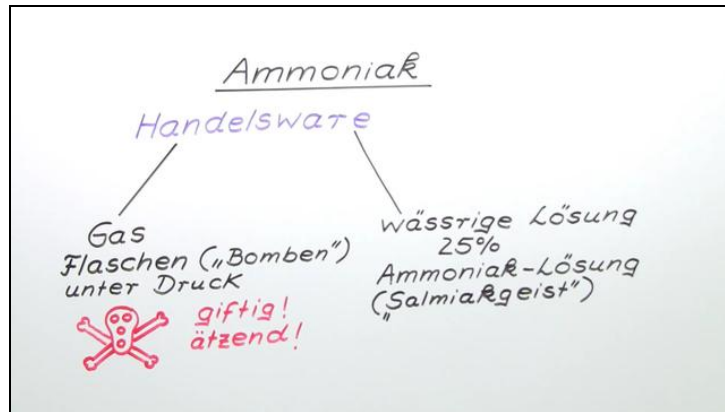 Ammoniak
Handelsware
Gas
Flaschen („Bomben")
unter Druck
giftig!
ätzend!
wässrige Lösung
25%
Ammoniak-Lösung
(„Salmiakgeist")